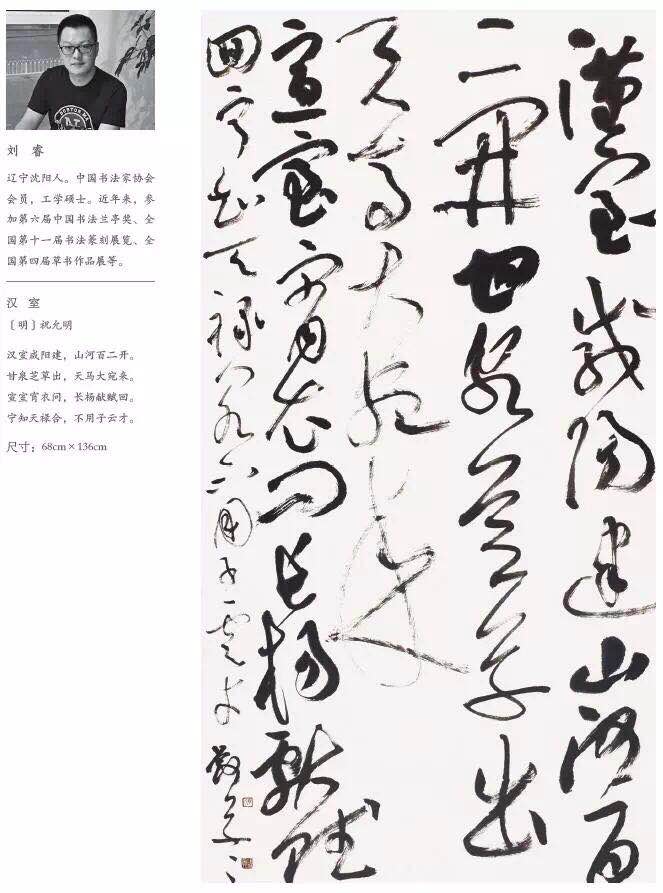 刘 睿
辽宁沈阳人。中国书法家协会
会员,工学硕士。近年来,参
加第六届中国书法兰亭奖、全
国第十一届书法篆刻展览、全
国第四届草书作品展等。
汉 室
〔明〕祝允明
汉室咸阳建,山河百二开。
甘泉芝草出,天马大宛来。
宣室宵衣问,长杨献赋回。
宁知天禄合,不用子云才。
尺寸:68cm×136cm
漢室咸陽建山河百
二開甘泉芝草出
天馬大宛來
宣室宵衣問長楊獻賦
回寧知天祿合不用子雲才